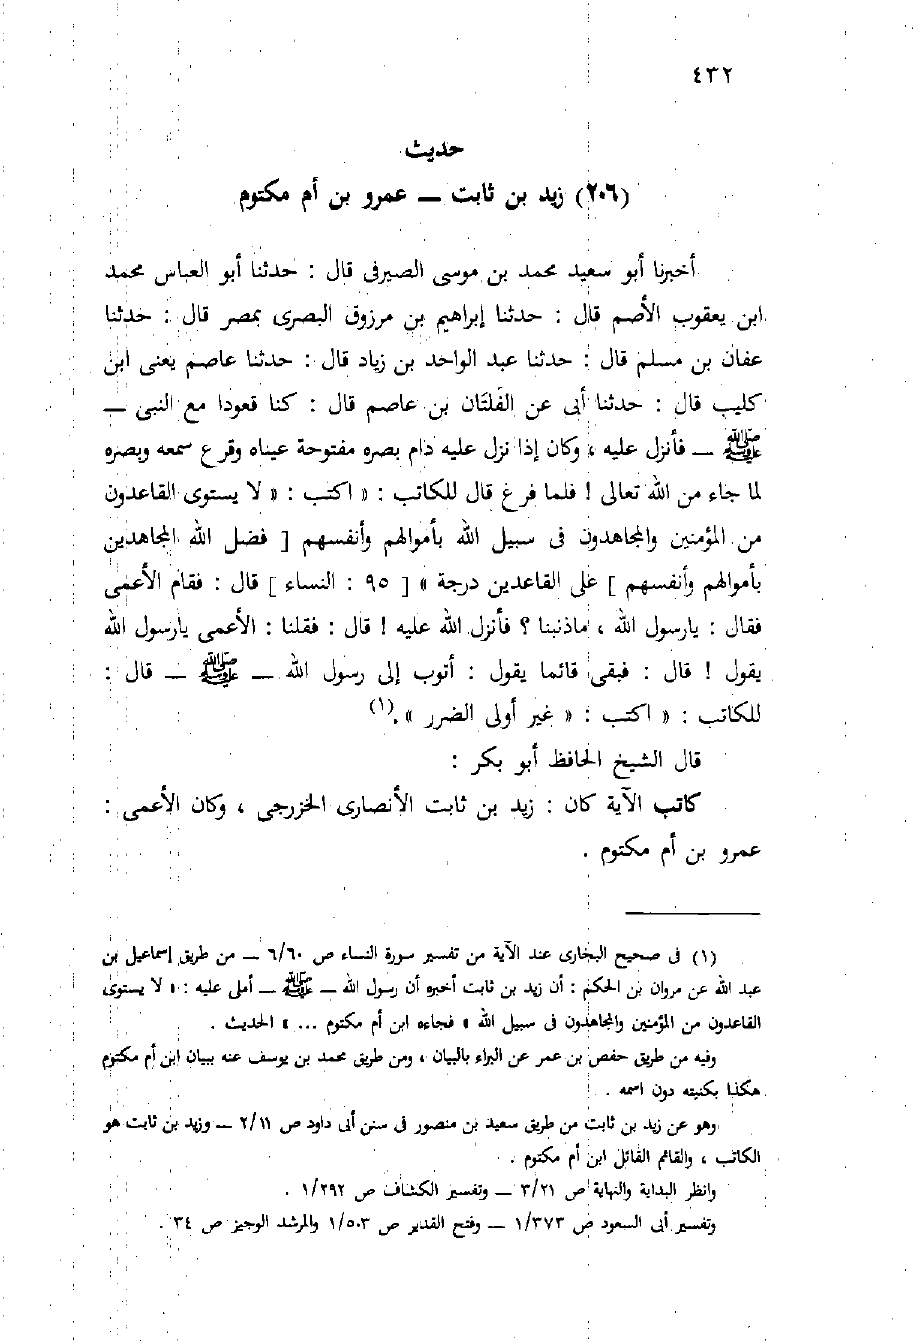 ٤٣٢
حديث
(٢٠٦) زيد بن ثابت ــ عمرو بن أم مكتوم
أخبرنا أبو سعيد محمد بن موسى الصيرفى قال : حدثنا أبو العباس محمد
ابن يعقوب الأصم قال : حدثنا إبراهيم بن مرزوق البصرى بمصر قال : حدثنا
عفان بن مسلم قال : حدثنا عبد الواحد بن زياد قال : حدثنا عاصم يعنى ابن
كليب قال : حدثنا أبى عن الفَلتَان بن عاصم قال : كنا قعودا مع النبى ــ
ﷺ ــ فأنزل عليه ، وكان إذا نزل عليه دام بصره مفتوحة عيناه وقرع سمعه وبصره
لما جاء من الله تعالى ! فلما فرغ قال للكاتب : « اكتب : « لا يستوى القاعدون
من المؤمنين والمجاهدون فى سبيل الله بأموالهم وأنفسهم [ فضل الله المجاهدين
بأموالهم وأنفسهم ] على القاعدين درجة » [ ٩٥ : النساء ] قال : فقام الأعمى
فقال : يارسول الله ، ماذنبنا ؟ فأنزل الله عليه ! قال : فقلنا : الأعمى يارسول الله
يقول ! قال : فبقى قائما يقول : أتوب إلى رسول الله ــ ﷺ ــ قال :
للكاتب : « اكتب : « غير أولى الضرر » .(١)
قال الشيخ الحافظ أبو بكر :
كاتب الآية كان : زيد بن ثابت الأنصارى الخزرجى ، وكان الأعمى :
عمرو بن أم مكتوم .
(١) فى صحيح البخارى عند الآية من تفسير سورة النساء ص ٦/٦٠ ــ من طريق إسماعيل بن
عبد الله عن مروان بن الحكم : أن زيد بن ثابت أخبره أن رسول الله ــ ﷺ ــ أملى عليه : « لا يستوى
القاعدون من المؤمنين والمجاهدون فى سبيل الله » فجاءه ابن أم مكتوم ... » الحديث .
وفيه من طريق حفص بن عمر عن البراء بالبيان ، ومن طريق محمد بن يوسف عنه ببيان ابن أم مكتوم
هكذا بكنيته دون اسمه .
وهو عن زيد بن ثابت من طريق سعيد بن منصور فى سنن أبى داود ص ٢/١١ ــ وزيد بن ثابت هو
الكاتب ، والقائم القائل ابن أم مكتوم .
وانظر البداية والنهاية ص ٣/٢١ ــ وتفسير الكشاف ص ١/٢٩٢ .
وتفسير أبى السعود ص ١/٣٧٣ ــ وفتح القدير ص ١/٥٠٣ والمرشد الوجيز ص ٣٤ .